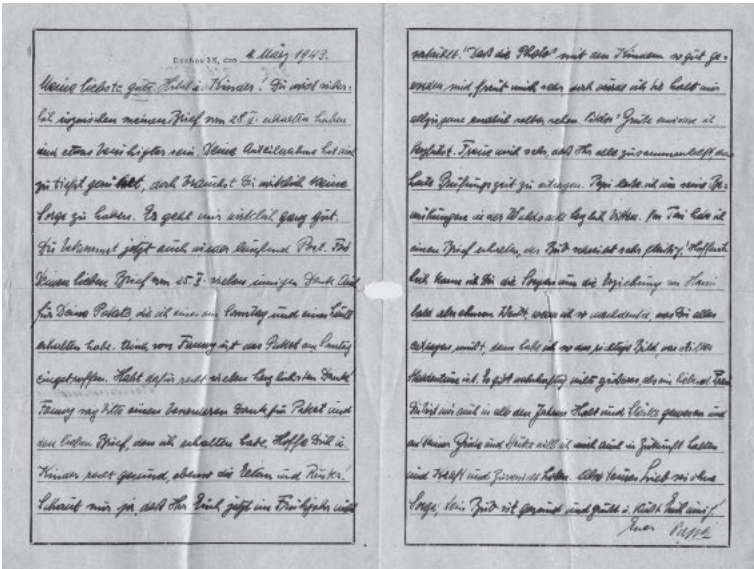 Dachau 3K, den 1. März 1943.
Meine liebste gute Hilde u. Kinder! Du wirst sicher-
lich inzwischen meinen Brief vom 28.I. erhalten haben
und etwas beruhigter sein. Deine Anteilnahme hat mich
zu tiefst gerührt, doch brauchst Du wirklich keine
Sorge zu haben. Es geht mir wirklich ganz gut.
Du bekommst jetzt auch wieder laufend Post. Für
Deinen lieben Brief vom 25.I. vielen innigen Dank. Auch
für Deine Pakete, die ich eines am Samstag und eines heute
erhalten habe. Auch von Fanny ist das Paket am Samstag
eingetroffen. Habt dafür recht vielen herzlichsten Dank!
Fanny sag bitte einen besonderen Dank für Paket und
den lieben Brief, den ich erhalten habe. Hoffe Dich u.
Kinder recht gesund, ebenso die Eltern und
Schaut mir ja, daß Ihr Euch jetzt im Frühjahr nicht
erkältet! Daß die Photos mit den Kindern so gut ge-
worden sind, freut mich sehr, doch würde ich sie halt
allzugerne endlich selber sehen. Grüße erwidere ich
herzlichst. Freue mich sehr, daß Ihr alle zusammenhelft, die
harte Prüfungszeit zu ertragen. Papi lasse ich um seine Be-
mühungen in der Waldsache herzlich bitten. Von habe ich
einen Brief erhalten, der Bub schreibt sehr fleißig! Hoffent-
lich kann ich Dir die Sorgen um die Erziehung von Hansi
bald abnehmen. Weißt, wenn ich so nachdenke, was Du alles
ertragen mußt, dann habe ich so das richtige Bild, was stilles
Heldentum ist. Es gibt wahrhaftig nichts größeres, als ein liebend
Du bist mir auch in all den Jahren Halt und Stärke gewesen und
an Deiner Güte und Stärke will ich mich auch in Zukunft halten
und Kraft und Zuversicht holen. Also Deines Lieb sei ohne
Sorge, Dein Bub ist gesund und grüßt u. küßt Euch innigst
Euer Papa